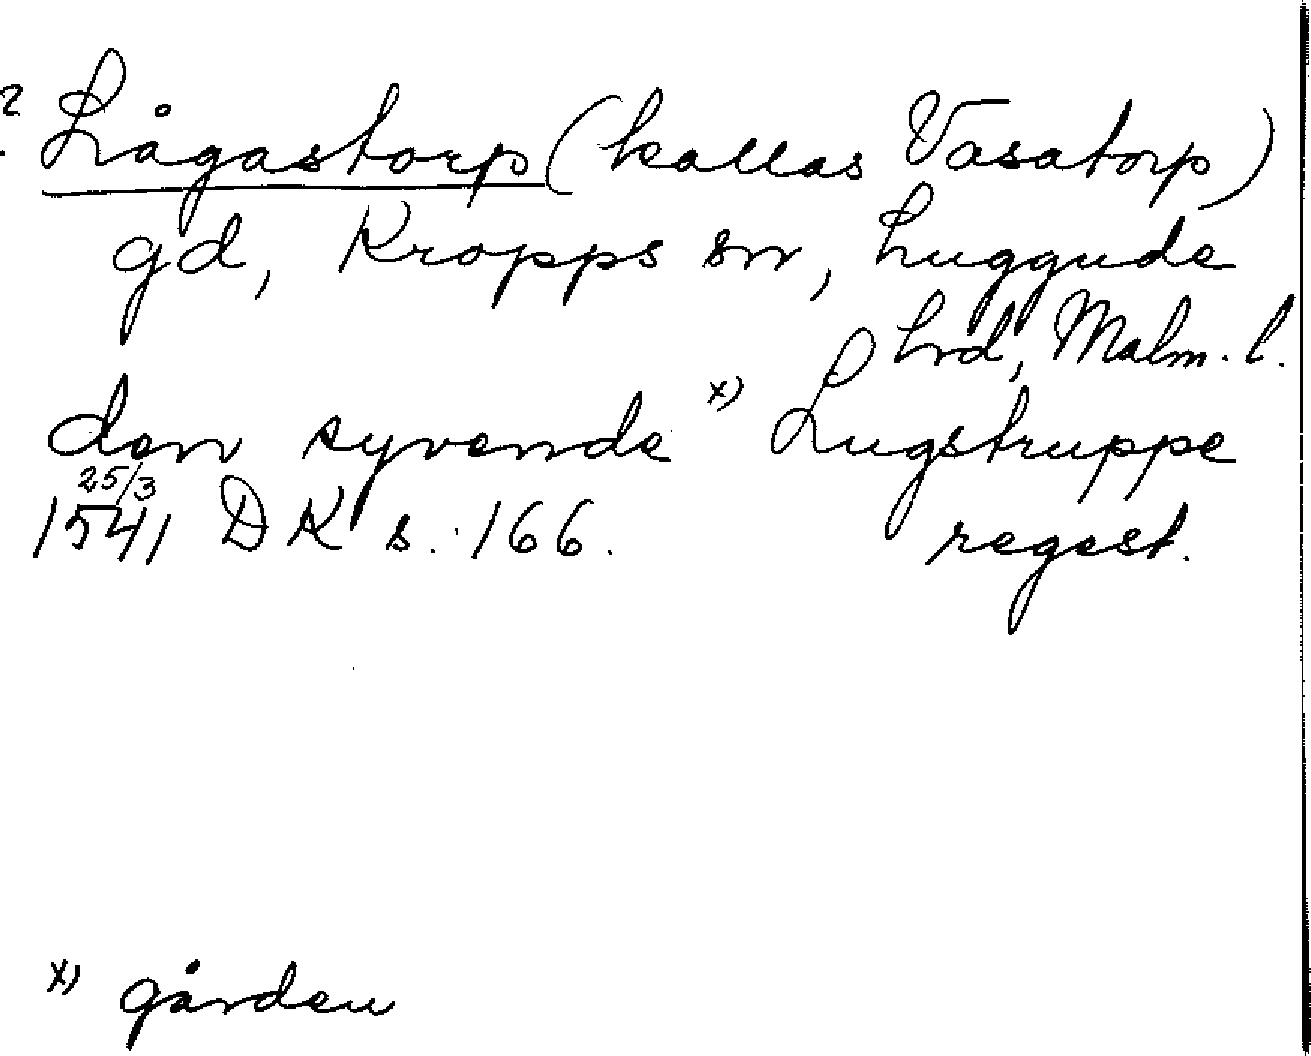 ? Lågastorp (kallas Vasatorp)
gd, Kropps sn, Luggude
hrd, Malm. l.
den syvende x) Lugstruppe
25/3
1541 DK s. 166. regest.
x) gården